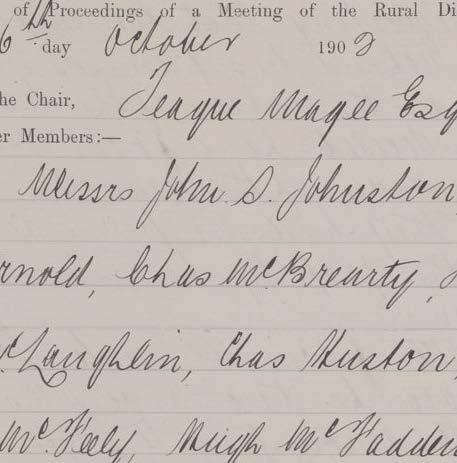 of Proceedings of a Meeting of the Rural Di
6th day October 1902
he Chair, Teague Magee Esq
er Members:—
Messrs John S. Johnston,
rnold, Chas McBrearty,
cLaughlin, Chas Huston,
McFeely, Hugh McFadden